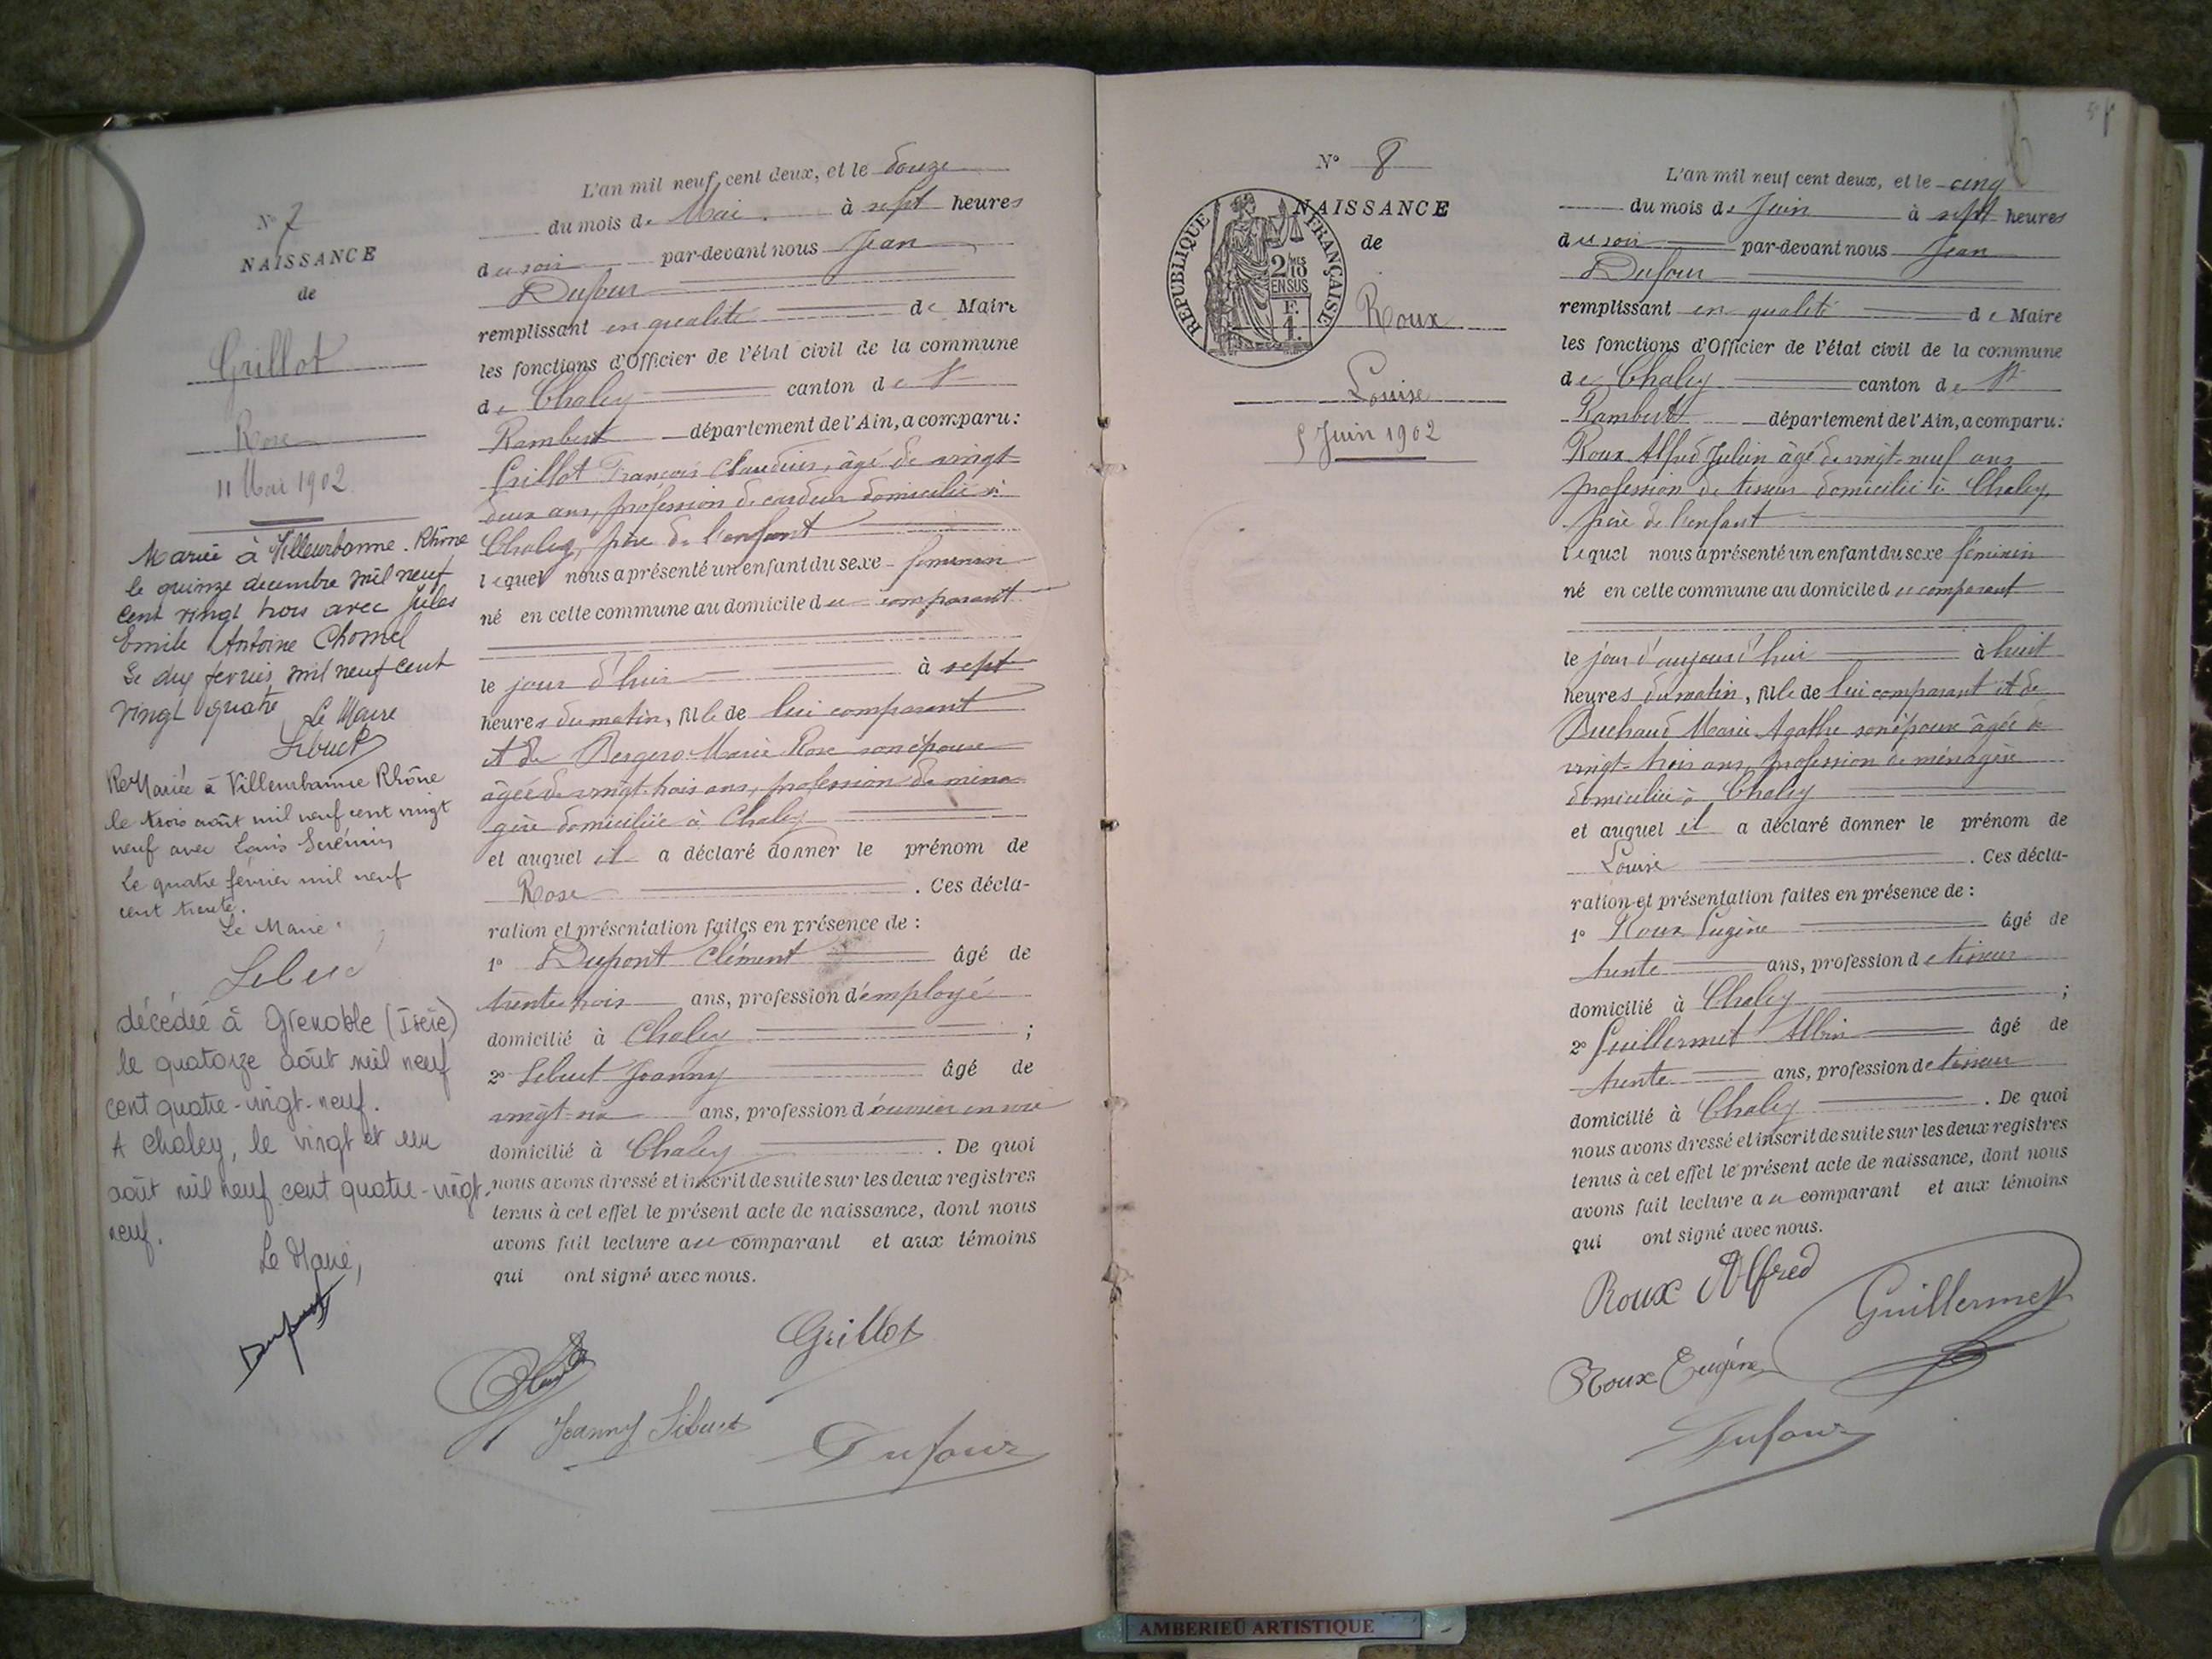 N° 7
NAISSANCE
de
Grillot
Rose
11 Mai 1902
Mariée à Villeurbanne. Rhône
le quinze decembre mil neuf
cent vingt trois avec Jules
Emile Antoine Chomel
Le dix fevrier mil neuf cent
vingt quatre
Le Maire
Sibuet
ReMariée à Villeurbanne Rhône
le trois août mil neuf cent vingt
neuf avec Louis
Le quatre février mil neuf
cent trente.
Le Maire
Sibuet
décédée à Grenoble (Isère)
le quatorze août mil neuf
cent quatre-vingt-neuf.
A Chaley, le vingt et un
août mil neuf cent quatre-vingt-
neuf.
Le Maire,
L'an mil neuf cent deux, et le douze
du mois de Mai à sept heures
du soir par-devant nous Jean
Dufour
remplissant en qualité de Maire
les fonctions d'Officier de l'état civil de la commune
de Chaley canton de St
Rambert département de l'Ain, a comparu :
Grillot François Claudius, âgé de vingt
deux ans, profession de cardeur domicilié à
Chaley, père de l'enfant
lequel nous a présenté un enfant du sexe féminin
né en cette commune au domicile du comparant
le jour d'hier à sept
heures du matin, fille de lui comparant
et de Bergero Marie Rose son épouse
âgée de vingt-trois ans, profession de ména-
gère domiciliée à Chaley
et auquel il a déclaré donner le prénom de
Rose . Ces décla-
ration et présentation faites en présence de :
1° Dupont Clément âgé de
trente trois ans, profession d'employé
domicilié à Chaley ;
2° Sibuet Joanny âgé de
ans, profession d'ouvrier en soie
domicilié à Chaley . De quoi
nous avons dressé et inscrit de suite sur les deux registres
tenus à cet effet le présent acte de naissance, dont nous
avons fait lecture au comparant et aux témoins
qui ont signé avec nous.
Grillot
Joanny Sibuet
Dufour
N° 8
NAISSANCE
de
RÉPUBLIQUE FRANÇAISE
2/10 MES
EN SUS
F.
1.
Roux
Louise
5 Juin 1902
L'an mil neuf cent deux, et le cinq
du mois de Juin à sept heures
du soir par-devant nous Jean
Dufour
remplissant en qualité de Maire
les fonctions d'Officier de l'état civil de la commune
de Chaley canton de St
Rambert département de l'Ain, a comparu :
Roux Alfred Julien âgé de vingt-neuf ans
profession de tisseur domicilié à Chaley,
père de l'enfant
lequel nous a présenté un enfant du sexe féminin
né en cette commune au domicile du comparant
le jour d'aujourd'hui à huit
heures du matin, fille de lui comparant et de
Buchaud Marie Agathe son épouse âgée de
vingt-trois ans, profession de ménagère
domiciliée à Chaley
et auquel il a déclaré donner le prénom de
Louise . Ces décla-
ration et présentation faites en présence de :
1° Roux Eugène âgé de
trente ans, profession de tisseur
domicilié à Chaley ;
2° Guillermet Albin âgé de
trente ans, profession de tisseur
domicilié à Chaley . De quoi
nous avons dressé et inscrit de suite sur les deux registres
tenus à cet effet le présent acte de naissance, dont nous
avons fait lecture au comparant et aux témoins
qui ont signé avec nous.
Roux Alfred
Guillermet
Roux Eugène
Dufour
AMBERIEU ARTISTIQUE